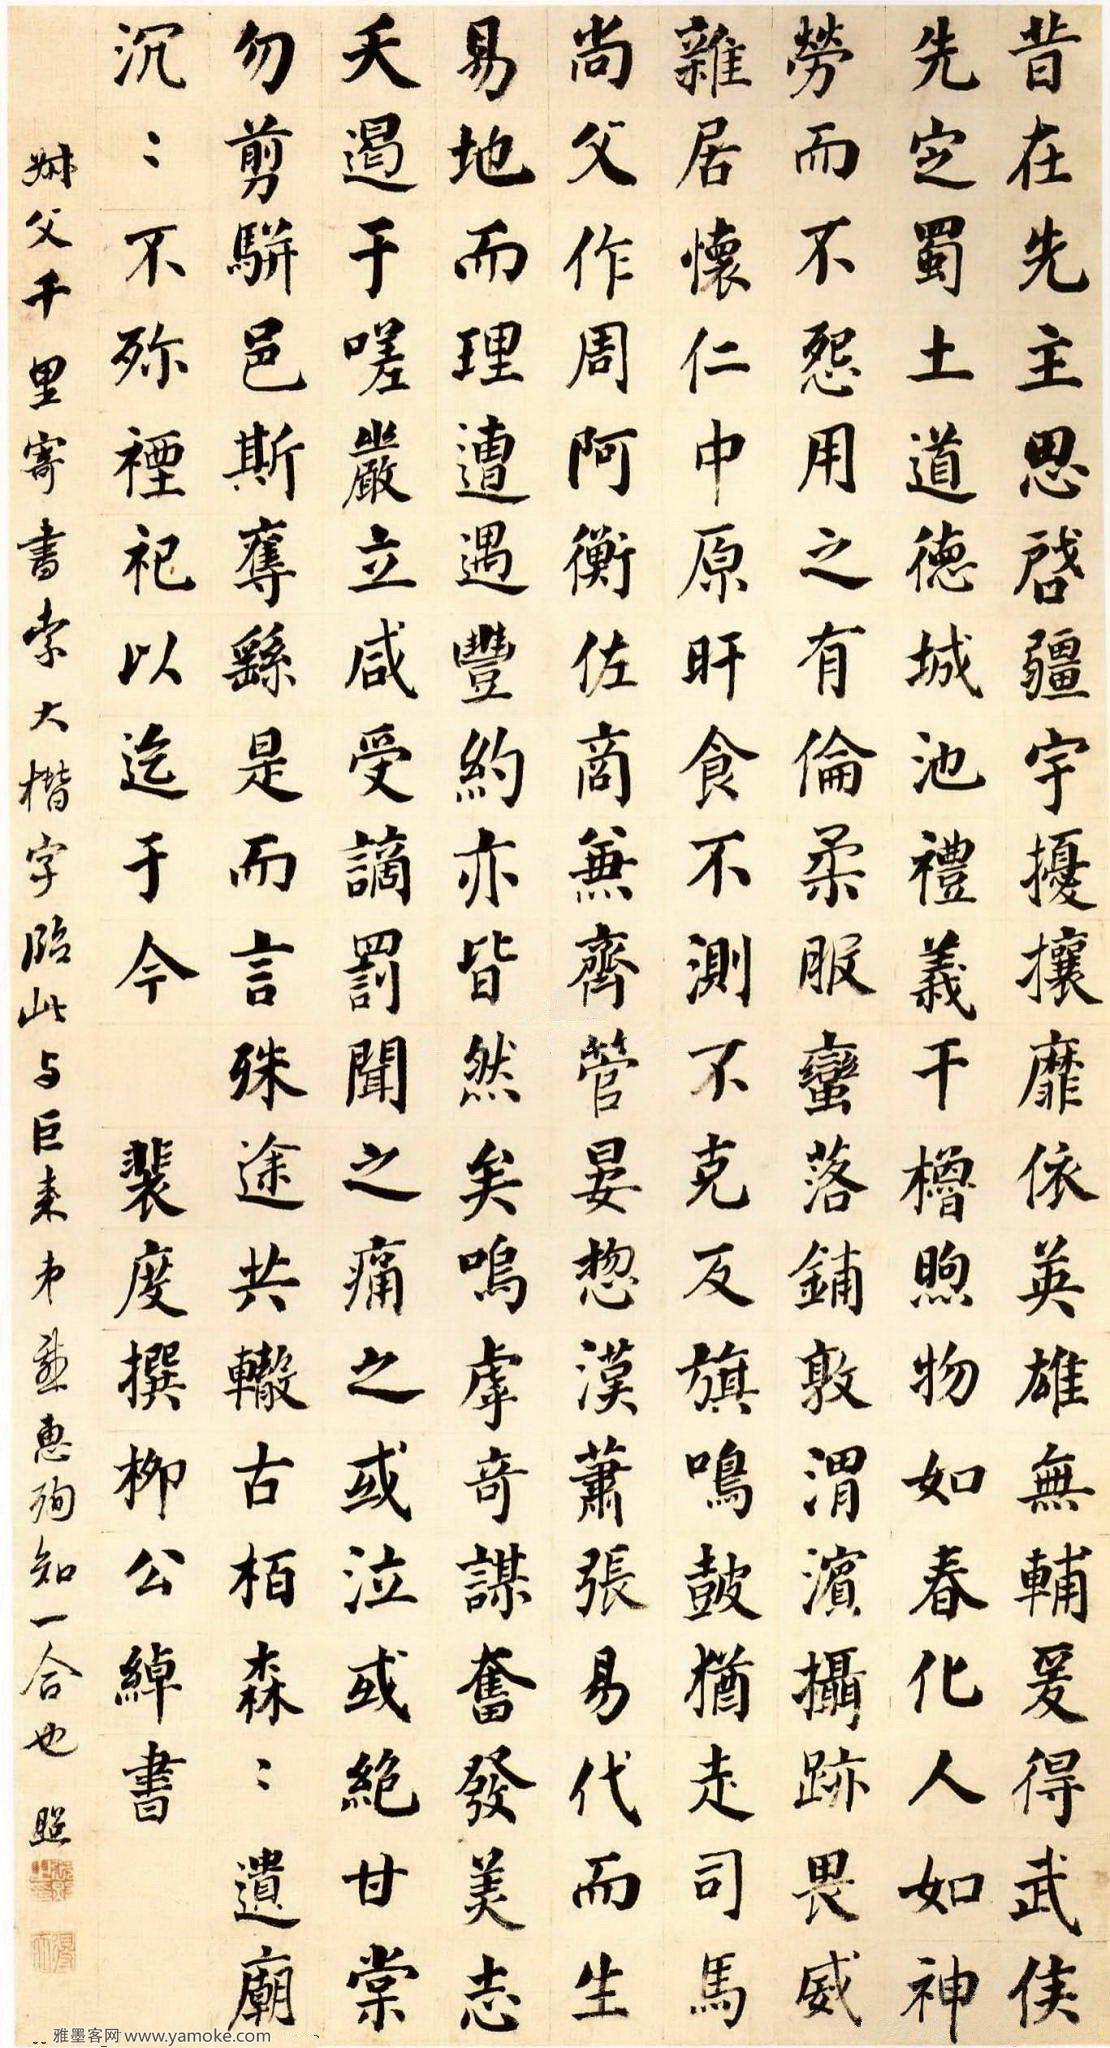 昔在先主思啓疆宇擾攘靡依英雄無輔爰得武侯
先定蜀土道德城池禮義干櫓煦物如春化人如神
勞而不怨用之有倫柔服蠻落鋪敦渭濱攝跡畏威
雜居懷仁中原旰食不測不克反旗鳴鼓猶走司馬
尚父作周阿衡佐商兼齊管晏惣漢蕭張易代而生
易地而理遭遇豐約亦皆然矣嗚虖奇謀奮發美志
夭遏于嗟嚴立咸受謫罰聞之痛之或泣或絕甘棠
勿剪駢邑斯奪繇是而言殊途共轍古柏森〻遺廟
沉〻不殄禋祀以迄于今 裴度撰柳公綽書
叔父千里寄書索大楷字臨此与巨來弟惠殉知一合也 照
雅墨客网 www.yamoke.com